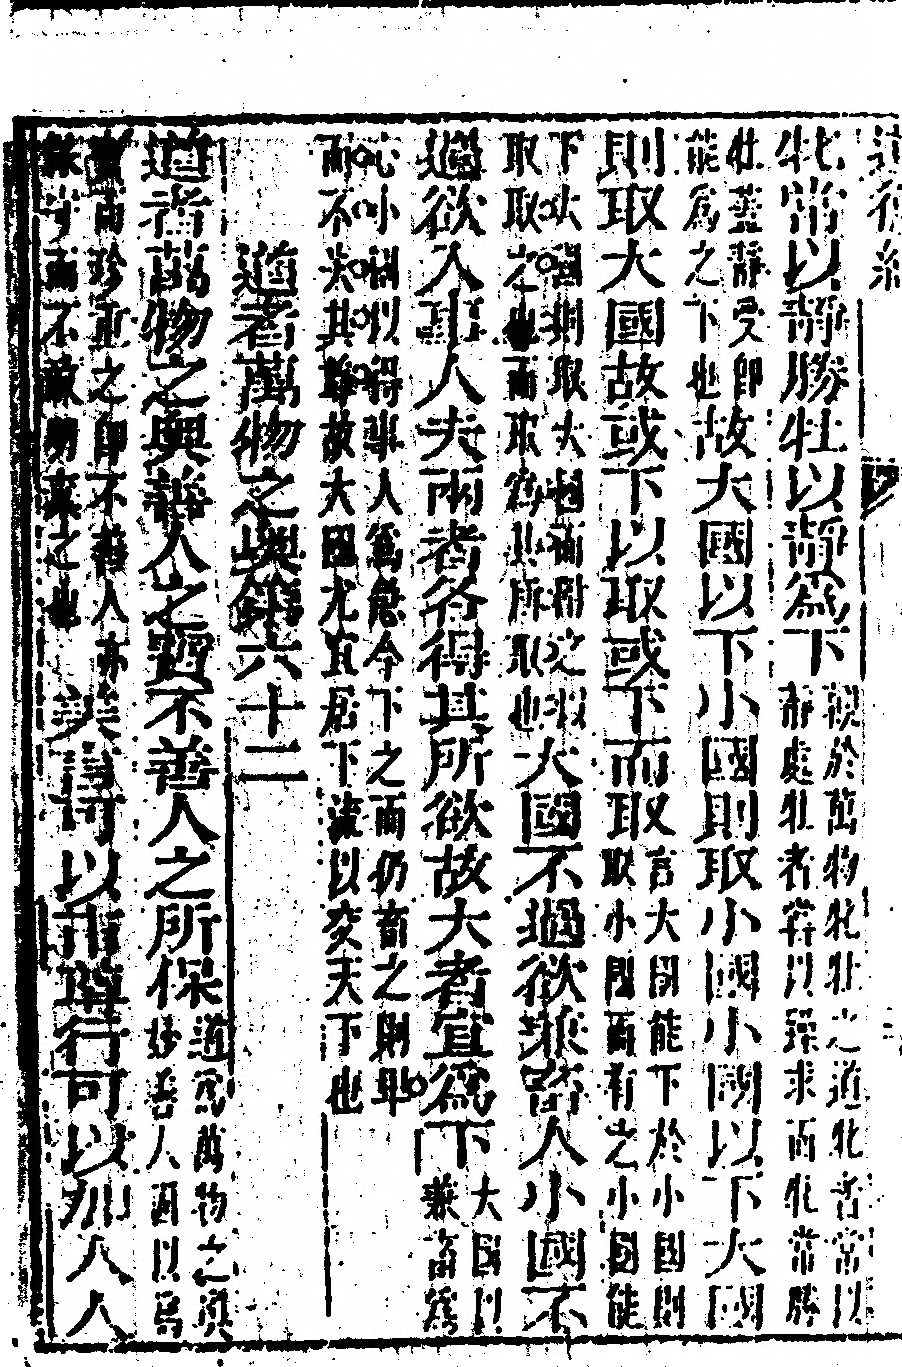 牝常以靜勝牡以靜爲下
觀於萬物牝牡之道牝者常以
靜處牡者嘗以躁求而牝常勝
牡蓋靜受即
能爲之下也
故大國以下小國則取小國小國以下大國
則取大國故或下以取或下而取
言大國能下於小國則
取小國而有之小國能
下大國則取大國而附之
取取之也而取爲其所取也
大國不過欲兼畜人小國不
過欲入事人夫兩者各得其所欲故大者宜爲下
大國以
兼畜爲
心小國以得事人爲急今下之而仍畜之則
而不失其歸故大國尤宜居下流以交天下也
道者萬物之奧第六十二
道者萬物之奧善人之寶不善人之所保
道爲萬物之奧
妙善人固以爲
寶而珍重之即不善人亦
保守而不敢明棄之也
美言可以市尊行可以加人人